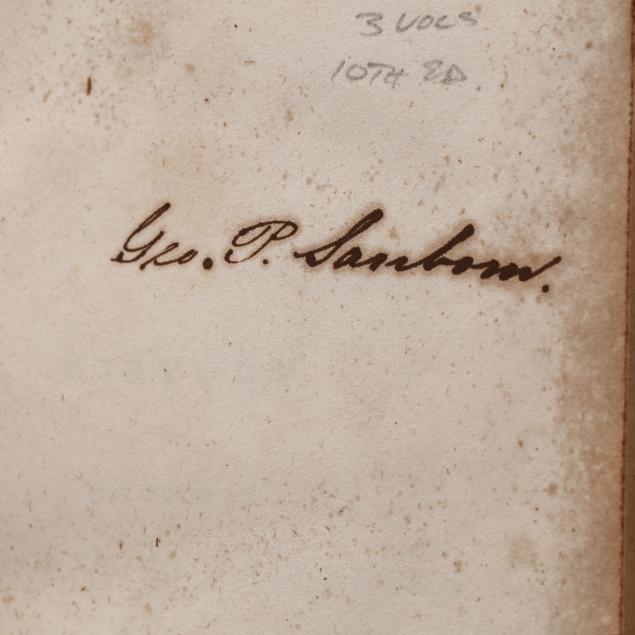 3 VOLS
10TH ED.
Geo. P. Sanborn.